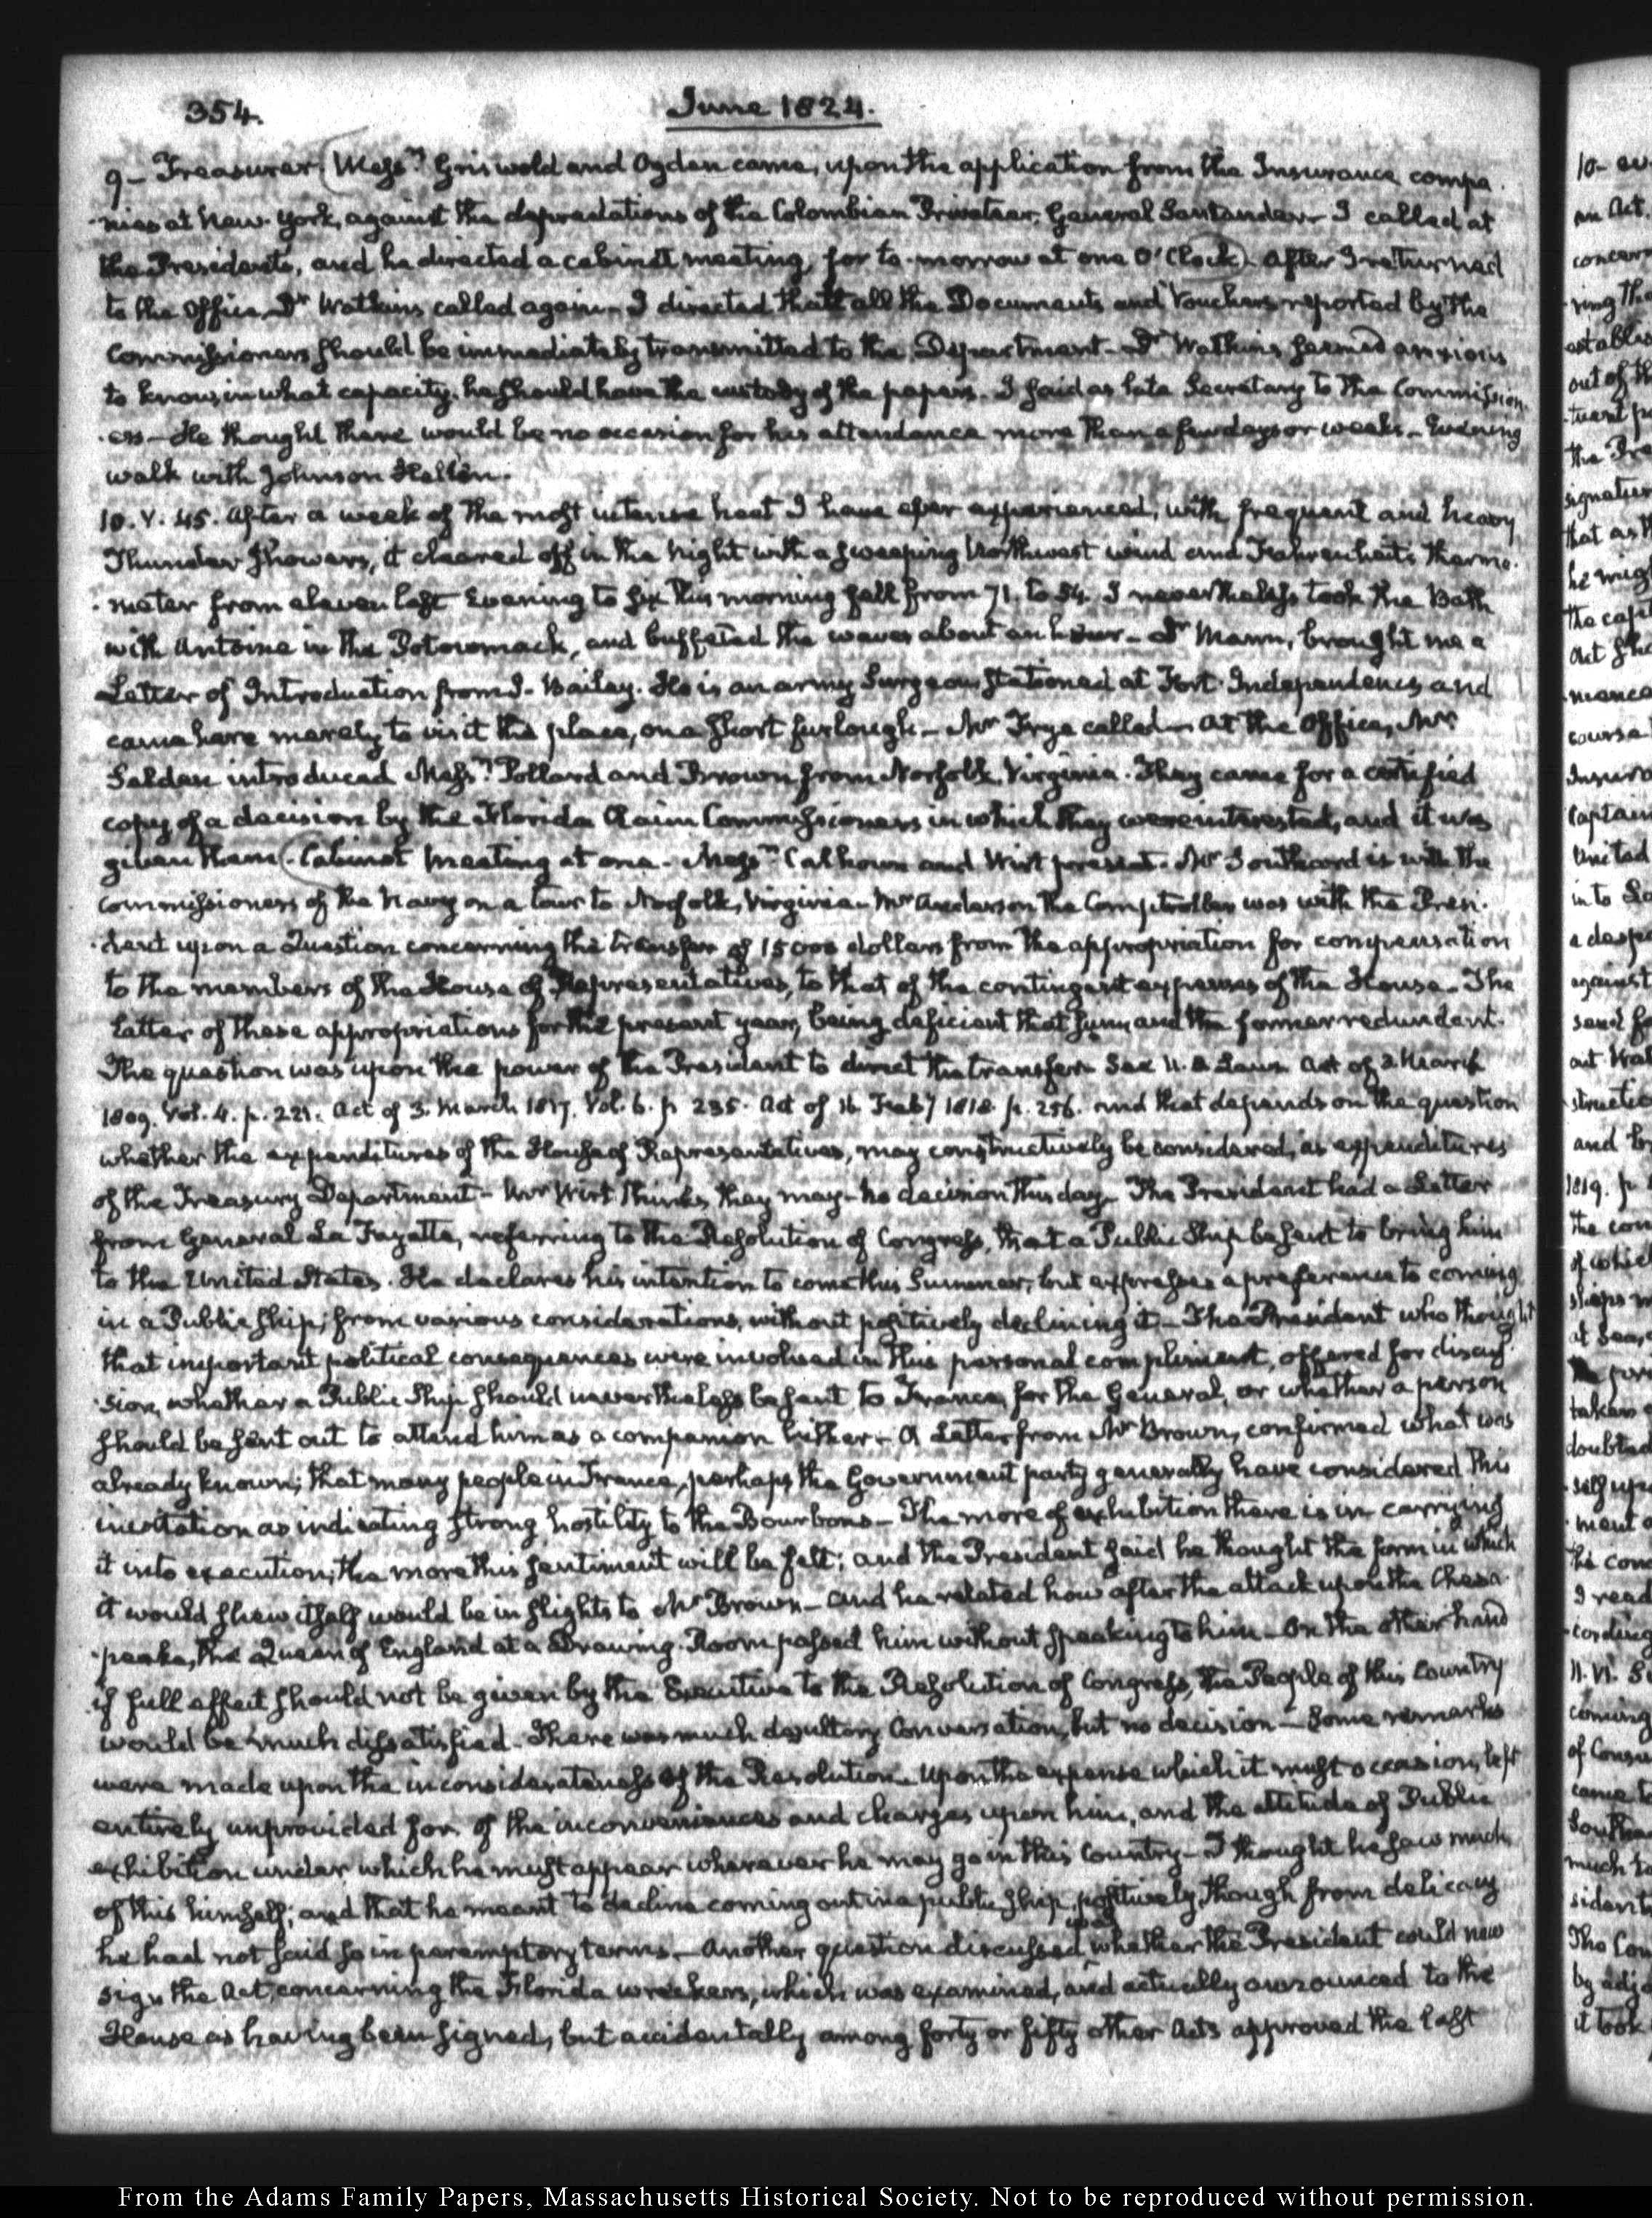 354.
June 1824.
9— Treasurer. Messrs. Griswold and Ogden came, upon the application from the Insurance compa
-nies at New-York, against the depredations of the Colombian Privateer, General Santander— I called at
the Presidents, and he directed a cabinet meeting, for to-morrow at one O'Clock. After I returned
to the Office, Dr Watkins called again— I directed that all the Documents and Vouchers reported by the
Commissioners should be immediately transmitted to the Department— Dr Watkins seemed anxious
to know, in what capacity, he should have the custody of the papers. I said as late Secretary to the Commission-
-ers— He thought there would be no occasion for his attendance more than a few days or weeks— Evening
walk with Johnson Hellen.
10. V. 45. After a week of the most intense heat I have ever experienced, with frequent and heavy
Thunder showers, it cleared off in the Night with a sweeping Northwest wind and Fahrenheit's thermo-
-meter from eleven last Evening to six this morning fell from 71. to 54. I nevertheless took the Bath
with Antoine in the Potowmack, and buffeted the waves about an hour— Dr Mann, brought me a
Letter of Introduction from J. Bailey. He is an army Surgeon stationed at Fort Independence and
came here merely to visit the place, on a short furlough— Mr Frye called— At the Office, Mr
Selden introduced Messrs. Pollard and Brown from Norfolk, Virginia. They came for a certified
copy of a decision by the Florida Claim Commissioners in which they were interested, and it was
given them. Cabinet meeting at one— Messrs Calhoun and Wirt present. Mr Southard is with the
Commissioners of the Navy on a tour to Norfolk, Virginia— Mr Anderson the Comptroller was with the Presi-
-dent upon a Question concerning the transfer of 15000 dollars from the appropriation for compensation
to the members of the House of Representatives, to that of the contingent expenses of the House— The
latter of these appropriations for the present year, being deficient that sum, and the former redundant.
The question was upon the power of the President to direct the transfer— See U.S. Laws Act of 3. March
1809. Vol. 4. p. 221. Act of 3. March 1817. Vol. 6. p 235. Act of 16 Feby 1818. p. 256. and that depends on the question
whether the expenditures of the House of Representatives, may constructively be considered, as expenditures
of the Treasury Department— Mr Wirt thinks they may— No decision this day— The President had a Letter
from General La Fayette, referring to the Resolution of Congress, that a Public Ship be sent to bring him
to the United States. He declares his intention to come this Summer, but expresses a preference to coming
in a Public ship, from various considerations, without positively declining it— The President who thought
that important political consequences were involved in this personal compliment, offered for discus-
-sion, whether a Public Ship should nevertheless be sent to France, for the General, or whether a person
should be sent out to attend him as a companion hither— A Letter from Mr Brown, confirmed what was
already known; that many people in France, perhaps the Government party generally have considered this
invitation as indicating strong hostility to the Bourbons— The more of exhibition there is in carrying
it into execution, the more this sentiment will be felt; and the President said he thought the form in which
it would shew itself would be in slights to Mr Brown— And he related how after the attack upon the Chesa-
-peake, the Queen of England at a Drawing-Room passed him without speaking to him— On the other hand
if full effect should not be given by the Executive to the Resolution of Congress, the People of this Country
would be much dissatisfied— There was much desultory Conversation, but no decision— Some remarks
were made upon the inconsiderateness of the Resolution— Upon the expense which it must occasion, left
entirely unprovided for, of the inconveniences and charges upon him, and the attitude of Public
exhibition under which he must appear wherever he may go in this Country— I thought he saw much
of this himself; and that he meant to decline coming out in a public ship, positively, though from delicacy
he had not said so in peremptory terms— Another question discussed was whether the President could now
sign the Act, concerning the Florida wreckers, which was examined, and actually announced to the
House as having been signed, but accidentally among forty or fifty other Acts approved the last
From the Adams Family Papers, Massachusetts Historical Society. Not to be reproduced without permission.